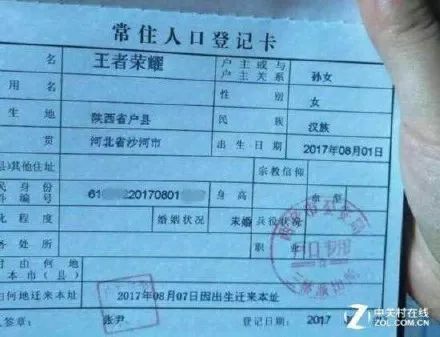 常住人口登记卡
名 王者荣耀 户主或与户主关系 孙女
用名 性别 女
生地 陕西省户县 民族 汉族
河北省沙河市 出生日期 2017年08月01日
县)其他住址 宗教信仰
民身份件编号 61 20170801 身高
程度 婚姻状况 未婚 兵役状况
务处所 职业
由何地本市(县)
由何地迁来本址 2017年08月07日因出生迁来本址
人签章: 张尹 登记日期: 2017
中关村在线
ZOL.COM.CN